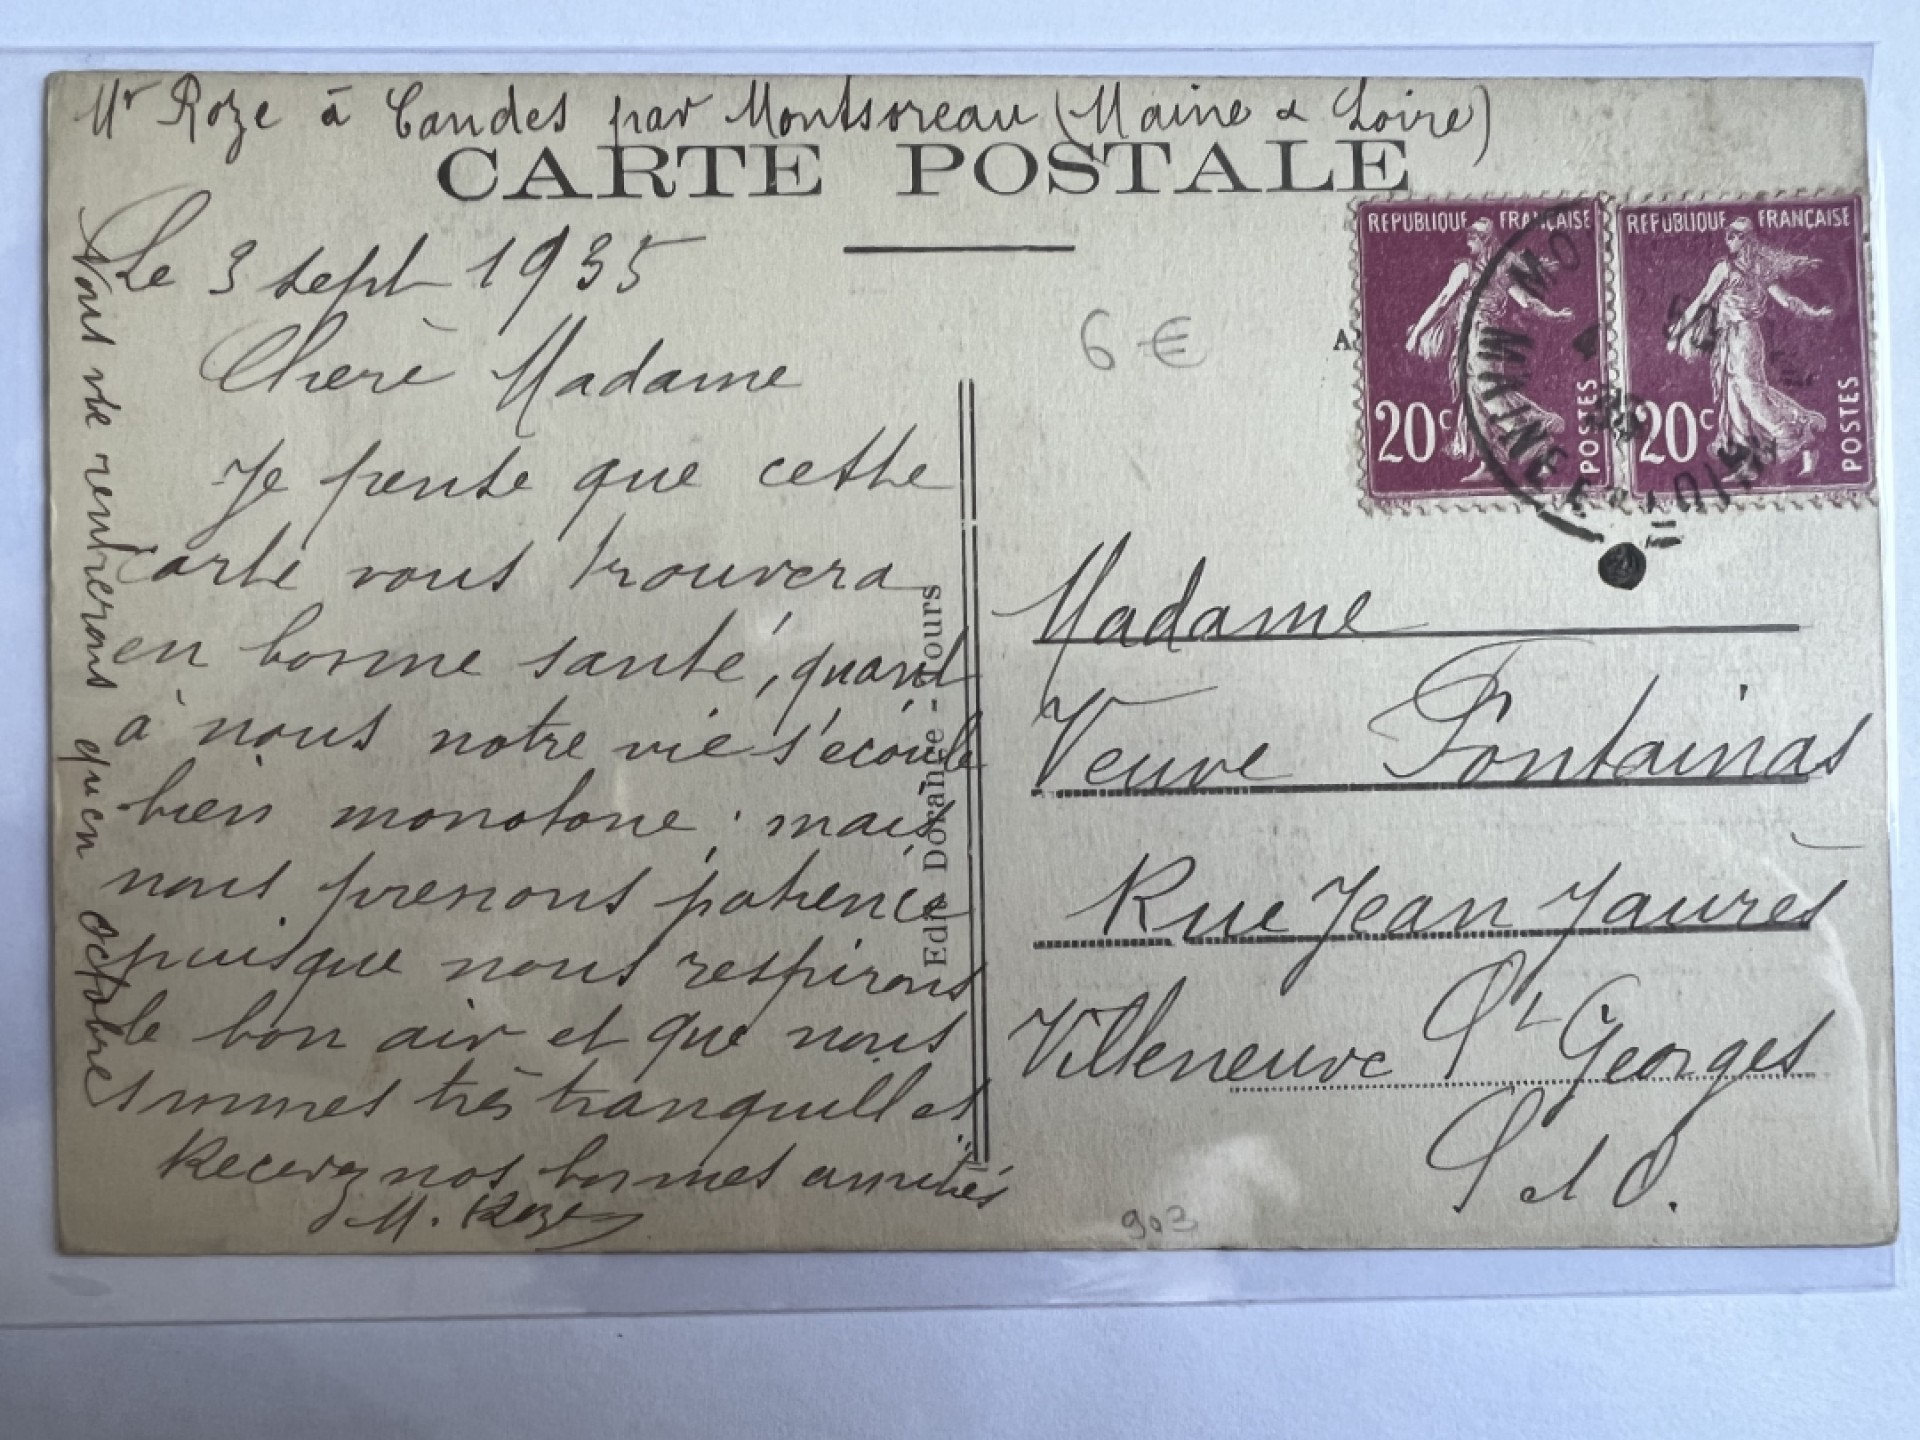 Mr Roze à Candes par Montsoreau (Maine & Loire)
CARTE POSTALE
Le 3 sept 1935
Cherè Madame
Je pense que cette
carte vous trouvera
en bonne santé, quand
à nous notre vie s'ecoule
bien monotone ; mais
nous prenons patience
puisque nous respirons
le bon air et que nous
sommes très tranquilles
Recevez nos bonnes amitiés
M. Roze
Nous ne rentrerons qu'en octobre
Edit. Dorange - Tours
6 €
A
REPUBLIQUE FRANÇAISE
20c
POSTES
REPUBLIQUE FRANÇAISE
20c
POSTES
MO
MAINE ET LOIRE
Madame
Veuve Fontainas
Rue Jean Jaurès
Villeneuve St Georges
S et O.
903